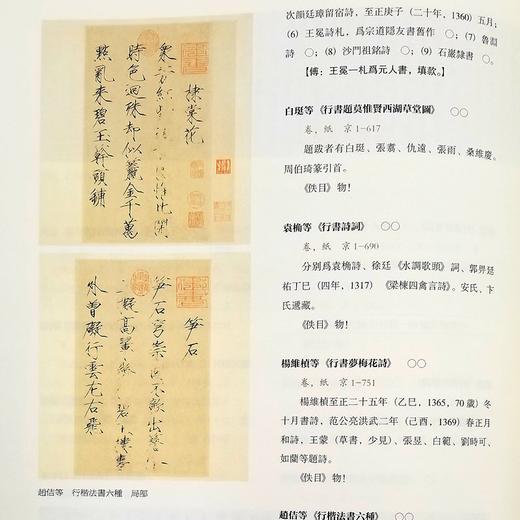 棣棠花
時色迥殊却似金千萬
點亂來碧玉幹頭鋪
筍石
筍石穹崇
外曾礙行雲左右飛
趙佶等　行楷法書六種　局部
次韻廷璋留宿詩，至正庚子（二十年，1360）五月；
（6）王冕詩札，爲宗道隱友書舊作　○；（7）魯淵
詩　○；（8）沙門祖銘詩　○；（9）石巖隸書　○。
【傅：王冕一札爲元人書，填款。】
白珽等《行書題莫惟賢西湖草堂圖》　○○
卷，紙　京1-617
題跋者有白珽、張翥、仇遠、張雨、桑維慶。
周伯琦篆引首。
《佚目》物！
袁桷等《行書詩詞》　○○
卷，紙　京1-690
分别爲袁桷詩、徐廷《水調歌頭》詞、郭畀延
祐丁巳（四年，1317）《梁楝四禽言詩》。安氏、卞
氏遞藏。
《佚目》物！
楊維楨等《行書夢梅花詩》　○○
卷，紙　京1-751
楊維楨至正二十五年（乙巳，1365，70歲）冬
十月書詩，范公亮洪武二年（己酉，1369）春正月
和詩，王蒙（草書，少見）、張昱、白範、劉時可、
如蘭等題詩。
《佚目》物！
趙佶等《行楷法書六種》　○○